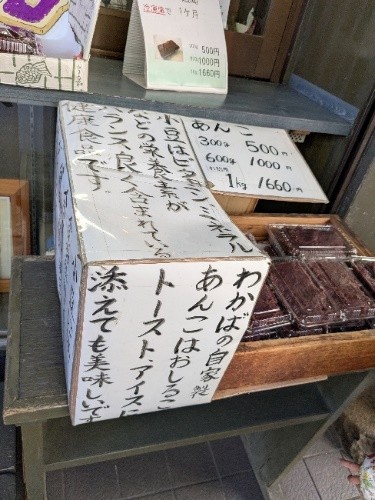 冷凍で 1ケ月
500円
1000円
1kg 1660円
あんこ
300g 500円
600g 1000円
1kg 1660円
小豆はビタミン、ミネラル
などの栄養素が
バランス良く含まれている
健康食品です。
わかばの自家製
あんこはおしるこ
トースト、アイスに
添えても美味しいです